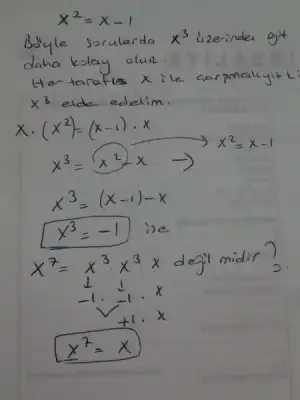 x² = x - 1
Böyle sorularda x³ üzerinden git
daha kolay olur.
Her tarafı x ile çarpmalıyız ki
x³ elde edelim.
x . (x²) = (x-1) . x
x³ = x² - x → x² = x - 1
x³ = (x-1) - x
x³ = -1 ise
x⁷ = x³ . x³ x değil midir?
-1 . -1 . x
+1 . x
x⁷ = x